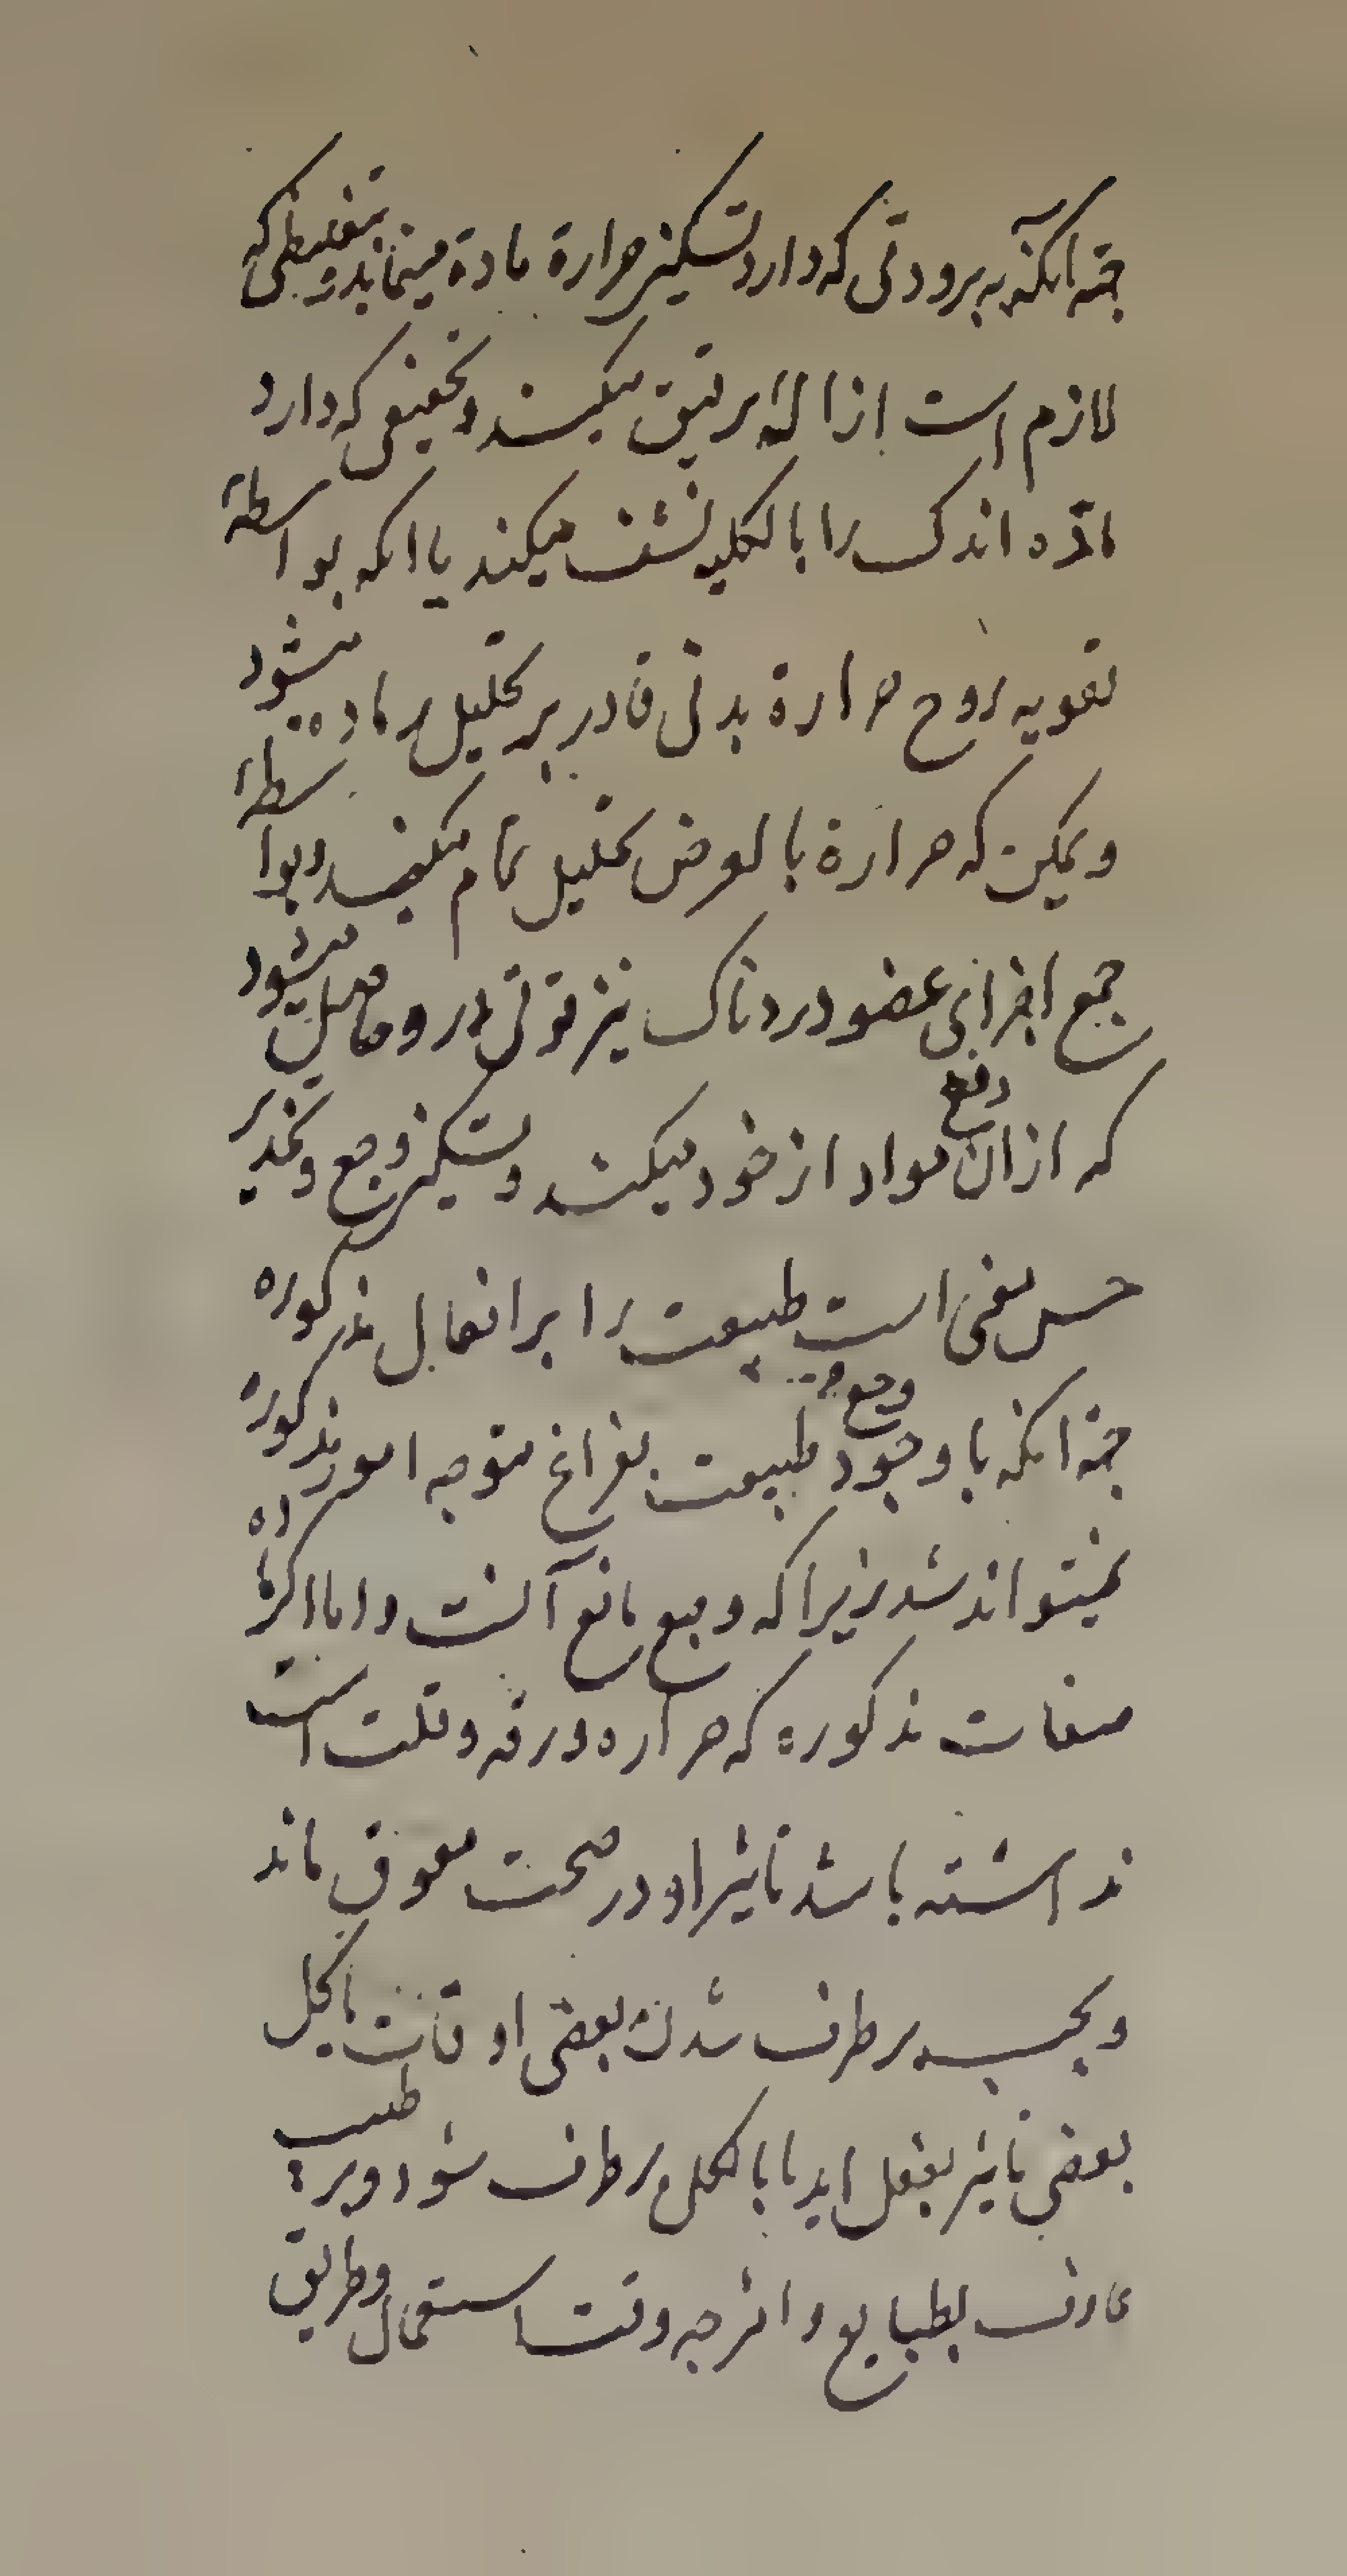 جهة آنکه به برودتی که دارد تسکین حرارة مادة مینماید و بتغلیظی که
لازم است ازاله رقیق میکند و تخفیفی که دارد
مادّه اندک را بالکلیه نشف میکند یا انکه بواسطهٔ
تقویه روح حرارة بدنی قادر بر تحلیل ماده میشود
و یمکن که حرارة بالعرض تحلیل تمام میکند و بواسطهٔ
جمع اجزای عضو دردناک نیز قوتی در و حاصل میشود
که ازان دفع مواد از خود میکند و تسکین وجع و تخدیر
حس معین است طبیعت را بر افعال مذکوره
جهة انکه با وجود وجع طبیعت بفراغ متوجه امور مذکورهٔ
نمیتواند شد زیرا که وجع مانع آنست و اما اکر ماده
صفات مذکوره که حراره و رقه و قلت است
نداشته باشد تاثیر او در صحت معوق ماند
و بحسب برطرف شدن بعضی اوقات یا کل
بعضی تاثیر بفعل اید یا بالکل برطرف شود و بر طبیب
عارف بطبایع و امزجه وقت استعمال و طریق